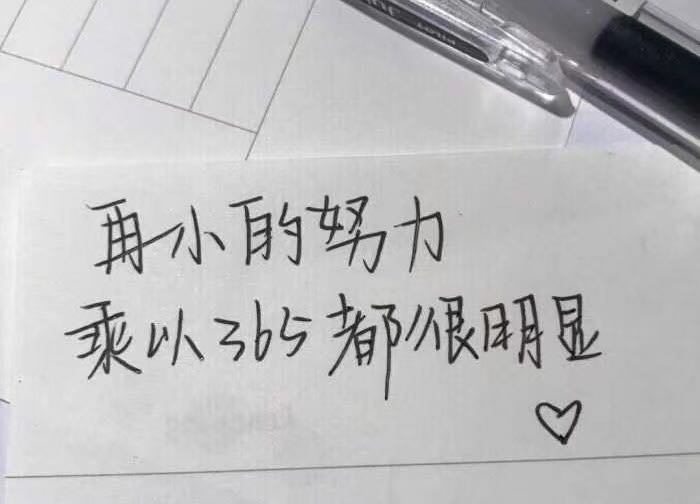 再小的努力
乘以365都很明显